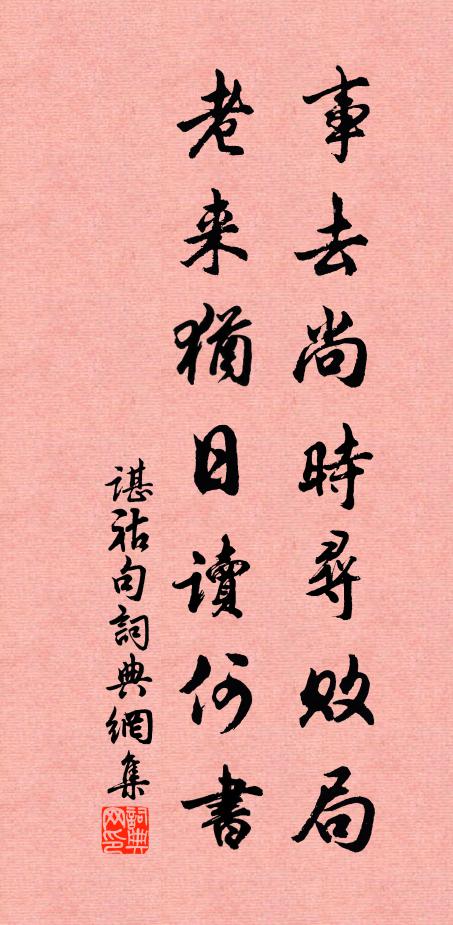 事去尚時尋敗局
老來猶日讀何書
諶祜句詞典網集
詞典
网印